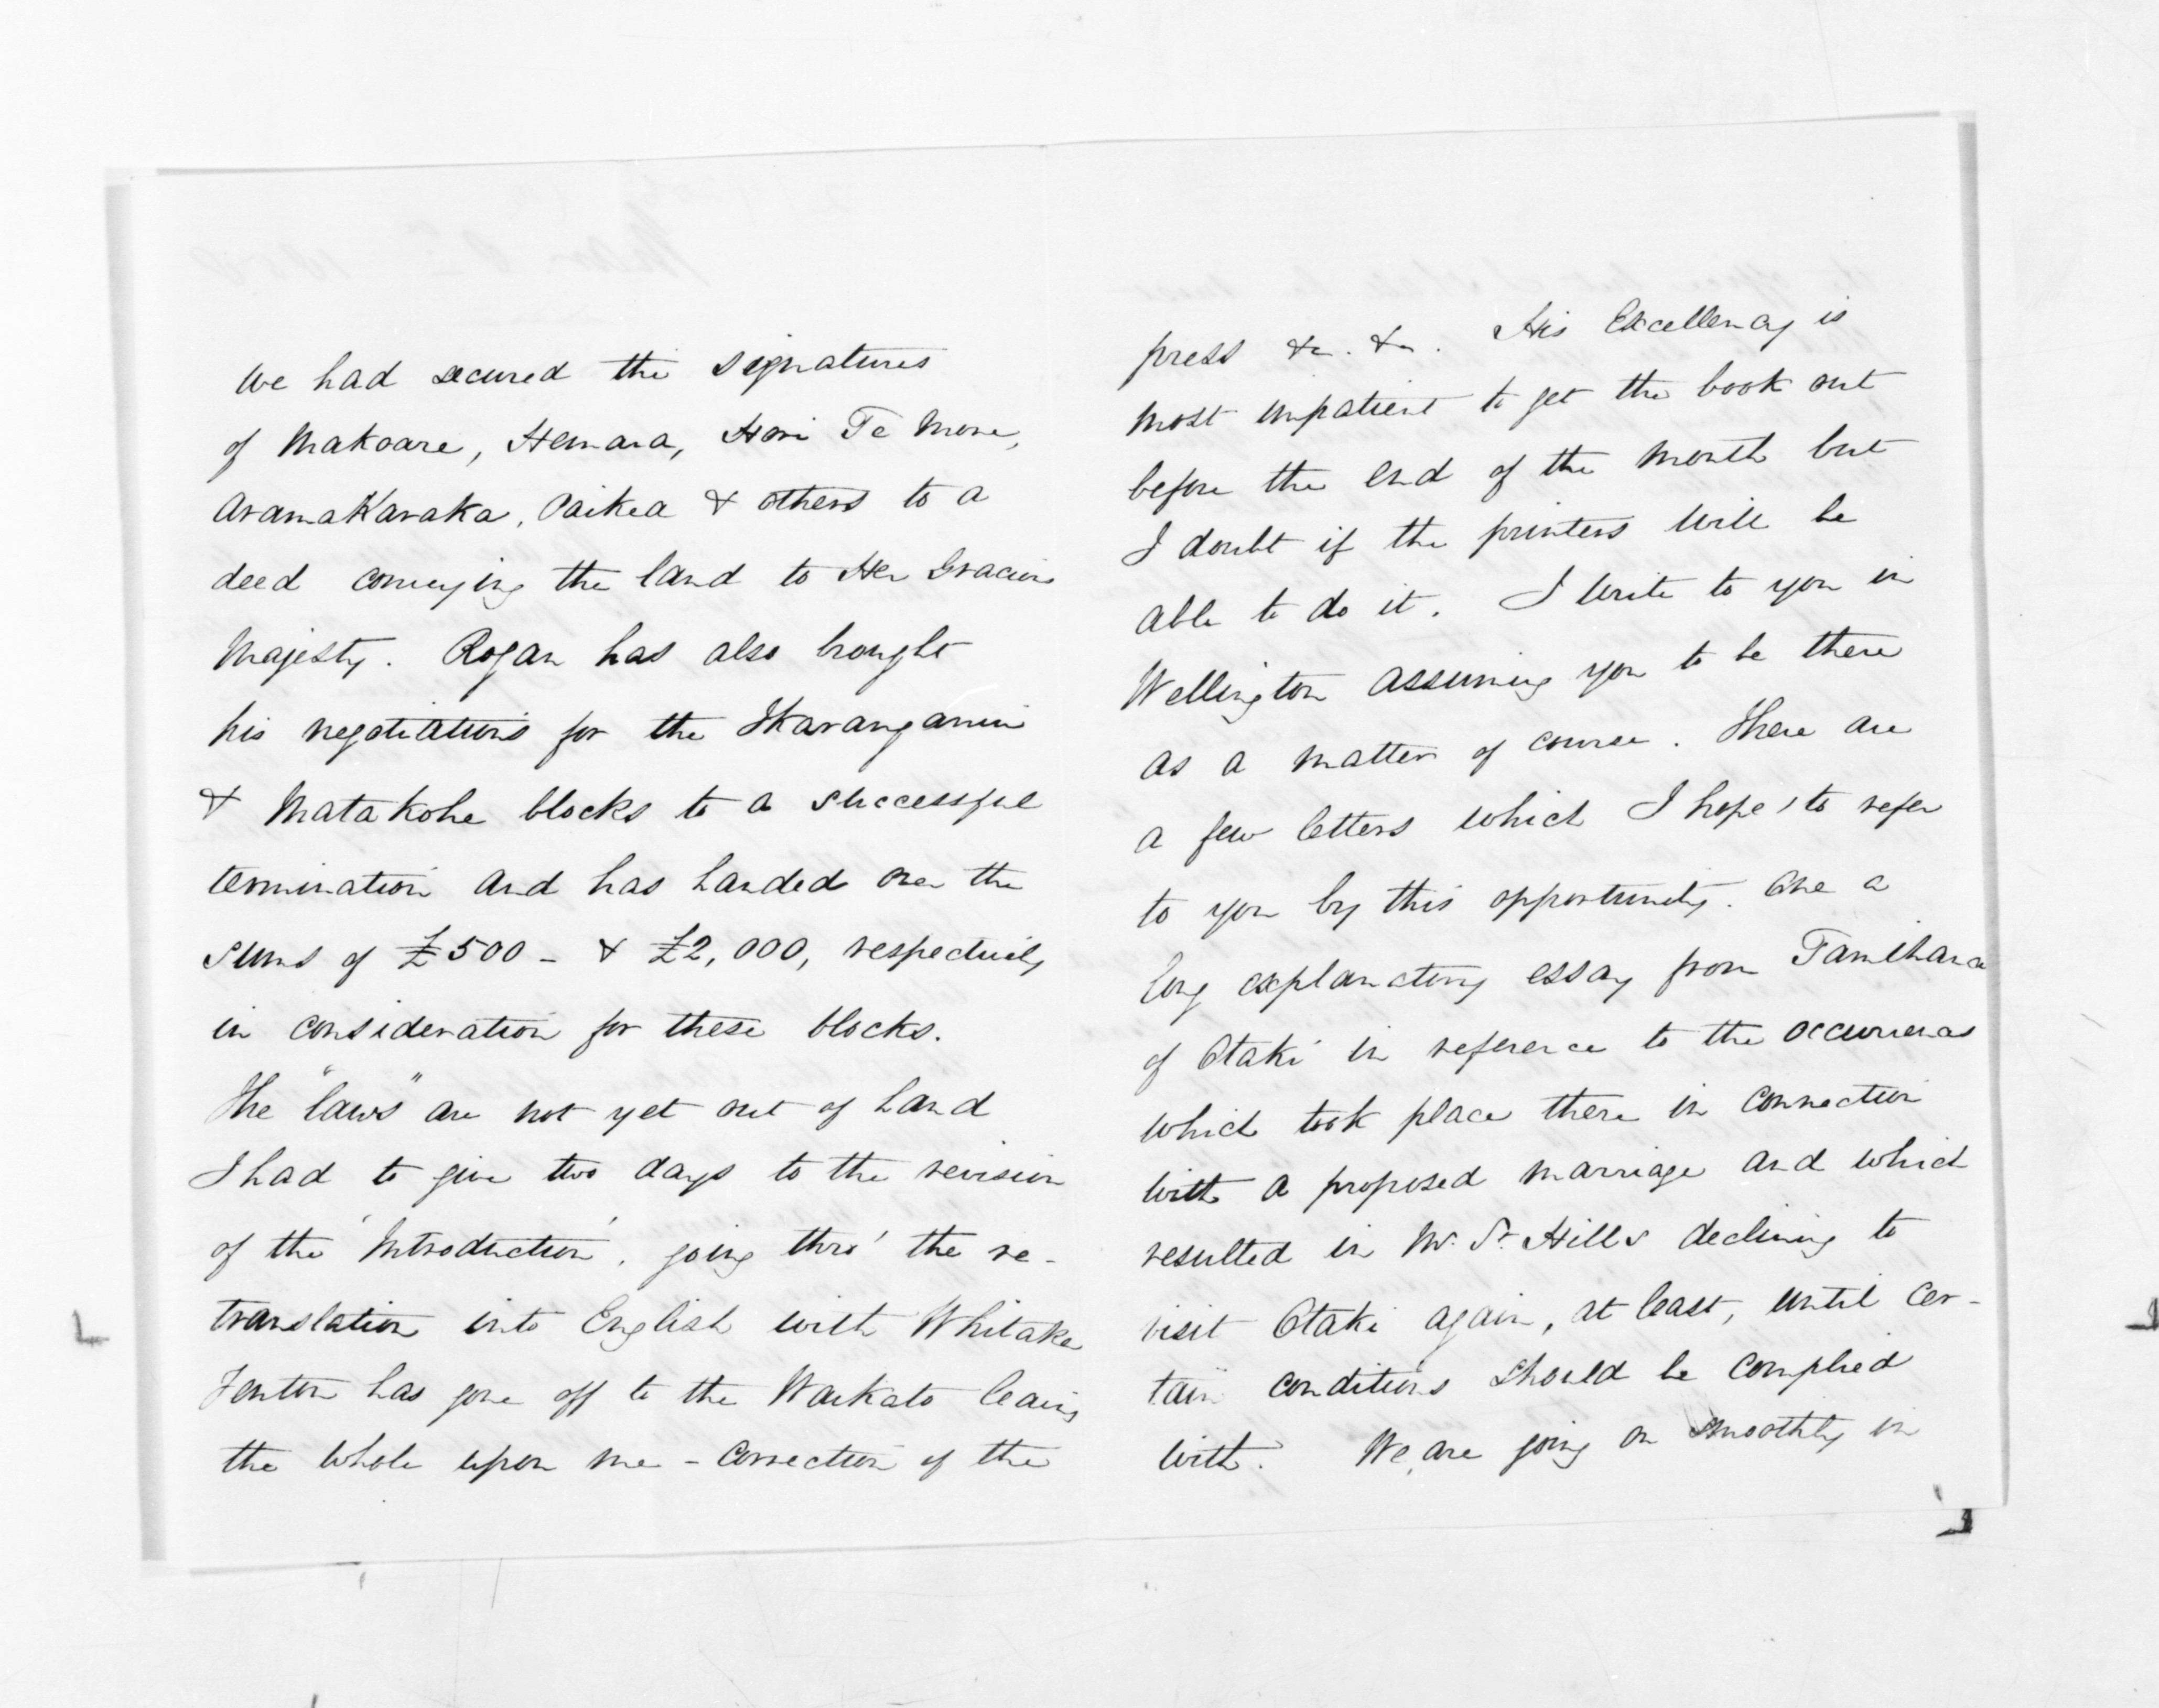 we had secured the signatures
of Makoare, Hemara, Hori Te More,
AramaKaraka, Paikea & others to a
deed conveying the land to Her Gracious
Majesty. Rogan has also brought
his negotiations for the
& Matakohe blocks to a successful
termination and has handed over the
sums of £500 - & £2,000, respectively
in consideration for these blocks.
The "laws" are not yet out of hand
I had to give two days to the revision
of the 'Introduction', going thro' the re-
translation into English with Whitaker
Fenton has gone off to the Waikato leaving
the whole upon me - correction of the
press &c. &c. His Excellency is
most impatient to get the book out
before the end of the month but
I doubt if the printers will be
able to do it. I write to you in
Wellington assuming you to be there
as a matter of course. There are
a few letters which I hope to refer
to you by this opportunity. One a
long explanatory essay from Tamihana
of Otaki in reference to the occurrences
which took place there in connection
with a proposed marriage and which
resulted in Mr. St. Hill's declining to
visit Otaki again, at least, until cer-
tain conditions should be complied
with. We are going on smoothly in